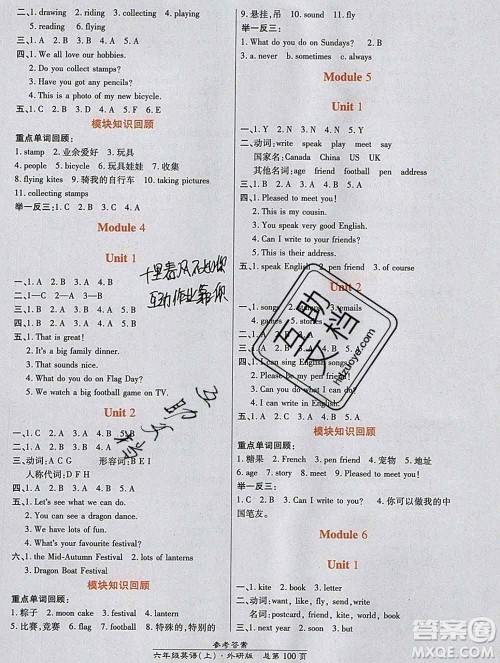 三、1. drawing 2. riding 3. collecting 4. playing
5. reading 6. flying
四、1. We all love our hobbies.
2. Do you collect stamps?
3. Have you got any pencils?
4. This is a photo of my new bicycle.
五、1. C 2. B 3. D 4. A 5. F 6. E
模块知识回顾
重点单词回顾:
1. stamp 2. 业余爱好 3. 玩具
4. people 5. 玩具娃娃 7. 收集
8. flying kites 9. 骑我的自行车 10. taking pictures
11. collecting stamps
举一反三:1. C 2. A 3. B
Module 4
Unit 1
一、1. A 2. B 3. A 4. B
二、1—B 2—A 3—C
三、1. A 2. B 3. A 4. B
四、1. A 2. A 3. B 4. A
五、1. That is great!
2. It's a big family dinner.
3. That sounds nice.
4. What do you do on Flag Day?
5. We watch a big football game on TV.
Unit 2
一、1. B 2. C 3. A
二、1. B 2. A 3. B
三、动词:A C G 形容词:B E I
人称代词:D F H
四、1. B 2. A 3. B 4. B
五、1. Let's see what we can do.
2. You can see a dragon dance.
3. We have lots of fun.
4. What's your favourite festival?
六、1. the Mid-Autumn Festival 2. lots of lanterns
3. Dragon Boat Festival
模块知识回顾
重点单词回顾:
1. 粽子 2. moon cake 3. festival 4. lantern
5. 比赛,竞赛 6. football 7. 特殊的,特别的
9. 悬挂,吊 10. sound 11. fly
举一反三:
1. What do you do on Sundays? 2. B
3. a. never b. sometimes c. always
Module 5
Unit 1
一、1. Y 2. N 3. Y 4. Y
二、动词:write speak play meet say
国家名:Canada China US UK
其他名词:age friend football pen address
三、1. A 2. B 3. A 4. B
四、1. Pleased to meet you!
2. This is my cousin.
3. You speak very good English.
4. Can I write to your friends?
五、1. speak English 2. pen friend 3. of course
Unit 2
四、1. I can sing English songs.
2. Please be my pen friend!
3. Can you do what I can do?
4. I can write in English.
模块知识回顾
重点单词回顾:
1. 糖果 2. French 4. 宠物 5. 地址
6. age 7. story 8. meet 9. Pleased to meet you!
举一反三:
1. C 2. B 3. Can I write to her? 4. 你可以做我的中
国笔友。
Module 6
Unit 1
一、1. kite 2. book 3. address 4. writing
参考答案
六年级英语(上)·外研版 总第 100 页
十里春风不如你
互动作业靠你
互助文档
hdzuoye.com
答案圈
MXQE.COM